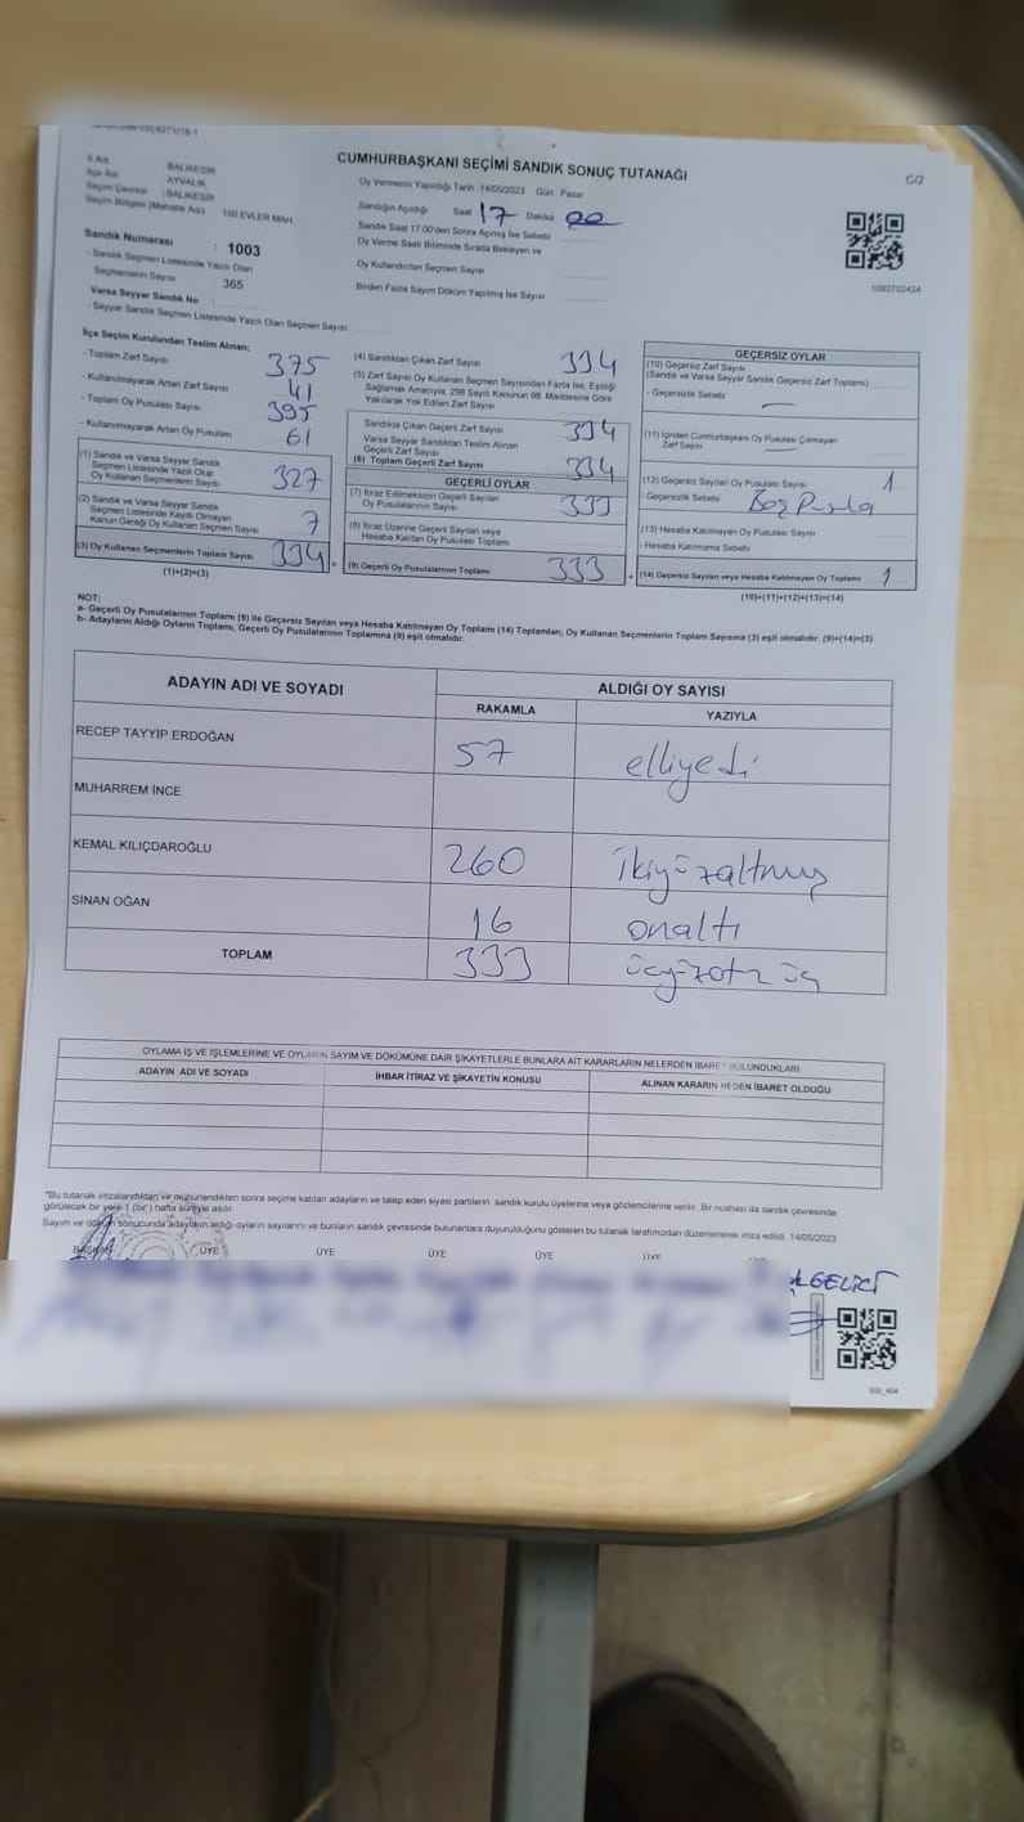 CUMHURBAŞKANI SEÇİMİ SANDIK SONUÇ TUTANAĞI
İl Adı BALIKESİR
İlçe Adı AYVALIK
Seçim Çevresi : BALIKESİR
Seçim Bölgesi (Mahalle Adı) 150 EVLER MAH.
Oy Vermenin Yapıldığı Tarih 14/05/2023 Gün: Pazar
Sandığın Açıldığı Saat 17 Dakika 00
Sandık Saat 17.00'den Sonra Açılmış İse Sebebi
Oy Verme Saati Bitiminde Sırada Bekleyen ve
Oy Kullandırılan Seçmen Sayısı
Birden Fazla Sayım Döküm Yapılmış İse Sayısı
Sandık Numarası : 1003
- Sandık Seçmen Listesinde Yazılı Olan
Seçmenlerin Sayısı 365
Varsa Seyyar Sandık No
- Seyyar Sandık Seçmen Listesinde Yazılı Olan Seçmen Sayısı
İlçe Seçim Kurulundan Teslim Alınan;
- Toplam Zarf Sayısı 375
- Kullanılmayarak Artan Zarf Sayısı 41
- Toplam Oy Pusulası Sayısı 395
- Kullanılmayarak Artan Oy Pusulası 61
(1) Sandık ve Varsa Seyyar Sandık
Seçmen Listesinde Yazılı Olup
Oy Kullanan Seçmenlerin Sayısı 327
(2) Sandık ve Varsa Seyyar Sandık
Seçmen Listesinde Kayıtlı Olmayan
Kanun Gereği Oy Kullanan Seçmen Sayısı 7
(3) Oy Kullanan Seçmenlerin Toplam Sayısı 334
(1)+(2)=(3)
(4) Sandıktan Çıkan Zarf Sayısı 334
(5) Zarf Sayısı Oy Kullanan Seçmen Sayısından Fazla İse, Eşitliği
Sağlamak Amacıyla, 298 Sayılı Kanunun 98. Maddesine Göre
Yakılarak Yok Edilen Zarf Sayısı
Sandıkta Çıkan Geçerli Zarf Sayısı 334
Varsa Seyyar Sandıktan Teslim Alınan
Geçerli Zarf Sayısı
(6) Toplam Geçerli Zarf Sayısı 334
GEÇERLİ OYLAR
(7) İtiraz Edilmeksizin Geçerli Sayılan
Oy Pusulalarının Sayısı 333
(8) İtiraz Üzerine Geçerli Sayılan veya
Hesaba Katılan Oy Pusulası Toplamı
(9) Geçerli Oy Pusulalarının Toplamı 333
GEÇERSİZ OYLAR
(10) Geçersiz Zarf Sayısı
(Sandık ve Varsa Seyyar Sandık Geçersiz Zarf Toplamı)
- Geçersizlik Sebebi
(11) İçinden Cumhurbaşkanı Oy Pusulası Çıkmayan
Zarf Sayısı
(12) Geçersiz Sayılan Oy Pusulası Sayısı 1
- Geçersizlik Sebebi Boş Pusula
(13) Hesaba Katılmayan Oy Pusulası Sayısı
- Hesaba Katılmama Sebebi
(14) Geçersiz Sayılan veya Hesaba Katılmayan Oy Toplamı 1
(10)+(11)+(12)+(13)=(14)
NOT:
a- Geçerli Oy Pusulalarının Toplamı (9) ile Geçersiz Sayılan veya Hesaba Katılmayan Oy Toplamı (14) Toplamları, Oy Kullanan Seçmenlerin Toplam Sayısına (3) eşit olmalıdır. (9)+(14)=(3)
b- Adayların Aldığı Oyların Toplamı, Geçerli Oy Pusulalarının Toplamına (9) eşit olmalıdır.
ADAYIN ADI VE SOYADI ALDIĞI OY SAYISI
RAKAMLA YAZIYLA
RECEP TAYYİP ERDOĞAN 57 elliyedi
MUHARREM İNCE
KEMAL KILIÇDAROĞLU 260 ikiyüzaltmış
SİNAN OĞAN 16 onaltı
TOPLAM 333 üçyüzotzüç
OYLAMA İŞ VE İŞLEMLERİNE VE OYLARIN SAYIM VE DÖKÜMÜNE DAİR ŞİKAYETLERLE BUNLARA AİT KARARLARIN NELERDEN İBARET BULUNDUKLARI
ADAYIN ADI VE SOYADI İHBAR İTİRAZ VE ŞİKAYETİN KONUSU ALINAN KARARIN NEDEN İBARET OLDUĞU
"Bu tutanak imzalandıktan ve mühürlendikten sonra seçime katılan adayların ve talep eden siyasi partilerin sandık kurulu üyelerine veya gözlemcilerine verilir. Bir nüshası da sandık çevresinde
görülecek bir yere 1 (bir) hafta süreyle asılır.
Sayım ve döküm sonucunda adayların aldığı oyların sayılarını ve bunların sandık çevresinde bulunanlara duyurulduğunu gösteren bu tutanak tarafımızdan düzenlenerek imza edildi. 14/05/2023
BAŞKAN ÜYE ÜYE ÜYE ÜYE ÜYE